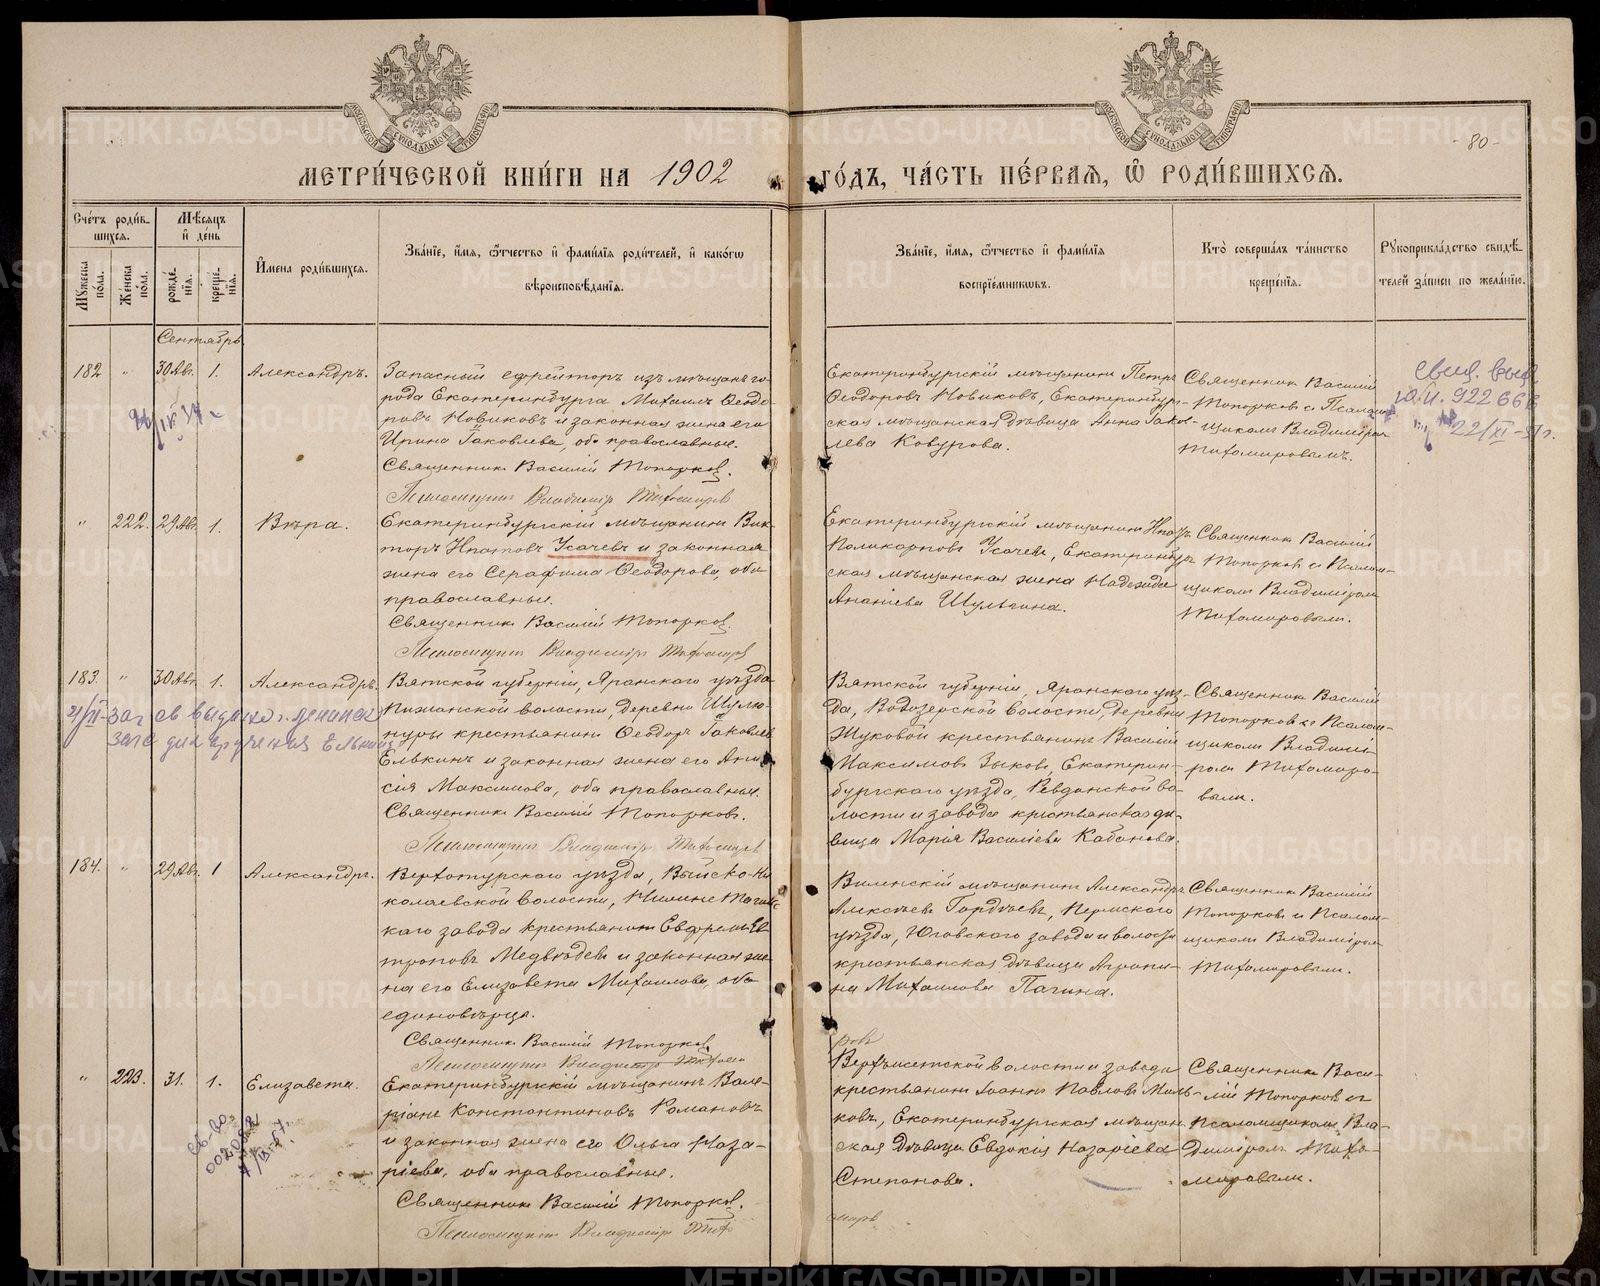 МЕТРИ́ЧЕСКОЙ КНИ́ГИ НА 1902 ГО́ДЪ, ЧА́СТЬ ПЕ́РВАѦ, Ѡ҆ РОДИ́ВШИХСѦ.
- 80 -
Сче́тъ роди́в-
шихсѧ.
Мꙋ́жеска по́ла.
Же́нска по́ла.
Мѣ́сѧцъ
и҆ де́нь
рожде́-
нїѧ.
креще́-
нїѧ.
И҆мена роди́вшихсѧ.
Зва́нїе, и҆́мѧ, ѻ҆́тчество и҆ фами́лїѧ роди́телей, и҆ како́гѡ
вѣроисповѣ́данїѧ.
Зва́нїе, и҆́мѧ, ѻ҆́тчество и҆ фами́лїѧ
воспрїе́мникѡвъ.
Кто̀ соверша́лъ та́инство
креще́нїѧ.
Рꙋкоприкла́дство свидѣ́-
телей за́писи по жела́нїю.
Сентябрь
182 " 30 Авг. 1. Александръ.
Запасный ефрейторъ изъ мѣщанъ го-
рода Екатеринбурга Михаилъ Ѳеодо-
ровъ Новиковъ и законная жена его
Ирина Іаковлева, оба православные.
Священникъ Василій Топорковъ.
Псаломщикъ Владиміръ Тихомировъ
Екатеринбургскій мѣщанинъ Петръ
Ѳеодоровъ Новиковъ, Екатеринбург-
ская мѣщанская дѣвица Анна Іаков-
лева Ковурова.
Священникъ Василій
Топорковъ съ Псалом-
щикомъ Владиміромъ
Тихомировымъ.
922666
22/XI-51 г.
" 222. 29 Авг. 1. Вѣра.
Екатеринбургскій мѣщанинъ Вик-
торъ Ипатовъ Усачевъ и законная
жена его Серафима Ѳеодорова, оба
православные.
Священникъ Василій Топорковъ.
Псаломщикъ Владиміръ Тихомировъ
Екатеринбургскій мѣщанинъ Ипатъ
Поликарповъ Усачевъ, Екатеринбург-
ская мѣщанская жена Надежда
Ананіева Шульгина.
Священникъ Василій
Топорковъ съ Псалом-
щикомъ Владиміромъ
Тихомировымъ.
183. " 30 Авг. 1. Александръ.
Вятской губерніи, Яранскаго уѣзда
Пижанской волости, деревни
крестьянинъ Ѳеодоръ Іаковлевъ
Елькинъ и законная жена его Ани-
сія Максимова, оба православные.
Священникъ Василій Топорковъ.
Псаломщикъ Владиміръ Тихомировъ
Вятской губерніи, Яранскаго уѣз-
да, Водозерской волости, деревни
Жуковой крестьянинъ Василій
Максимовъ Зыковъ, Екатерин-
бургскаго уѣзда, Ревдинской во-
лости и завода крестьянская дѣ-
вица Марія Василіева Кабанова.
Священникъ Василій
Топорковъ съ Псалом-
щикомъ Владимі-
ромъ Тихомиро-
вымъ.
184. " 29 Авг. 1 Александръ.
Верхотурскаго уѣзда, Выйско-Ни-
колаевской волости, Нижне Тагиль-
каго завода крестьянинъ Евфремъ Ев-
троповъ Медвѣдевъ и законная же-
на его Елизавета Михаилова, оба
единовѣрца.
Священникъ Василій Топорковъ
Псаломщикъ Владиміръ
Виленскій мѣщанинъ Александръ
Алексѣевъ Гордѣевъ, Пермскаго
уѣзда, Юговскаго завода и волости
крестьянская дѣвица Агрипи-
на Михаилова Пагина.
Священникъ Василій
Топорковъ и Псалом-
щикомъ Владиміромъ
Тихомировымъ.
" 223. 31. 1. Елизавета.
Екатеринбургскій мѣщанинъ Вале-
ріанъ Константиновъ Романовъ
и законная жена его Ольга Наза-
ріева, оба православные.
Священникъ Василій Топорковъ.
Псаломщикъ Владиміръ
Верхъисетской волости и завода
крестьянинъ Іоаннъ Павловъ Маль-
ковъ, Екатеринбургская мѣщан-
ская дѣвица Евдокія Назаріева
Степанова.
Священникъ Васи-
лій Топорковъ съ
Псаломщикомъ Вла-
диміромъ Тихо-
мировымъ.
METRIKI.GASO-URAL.RU